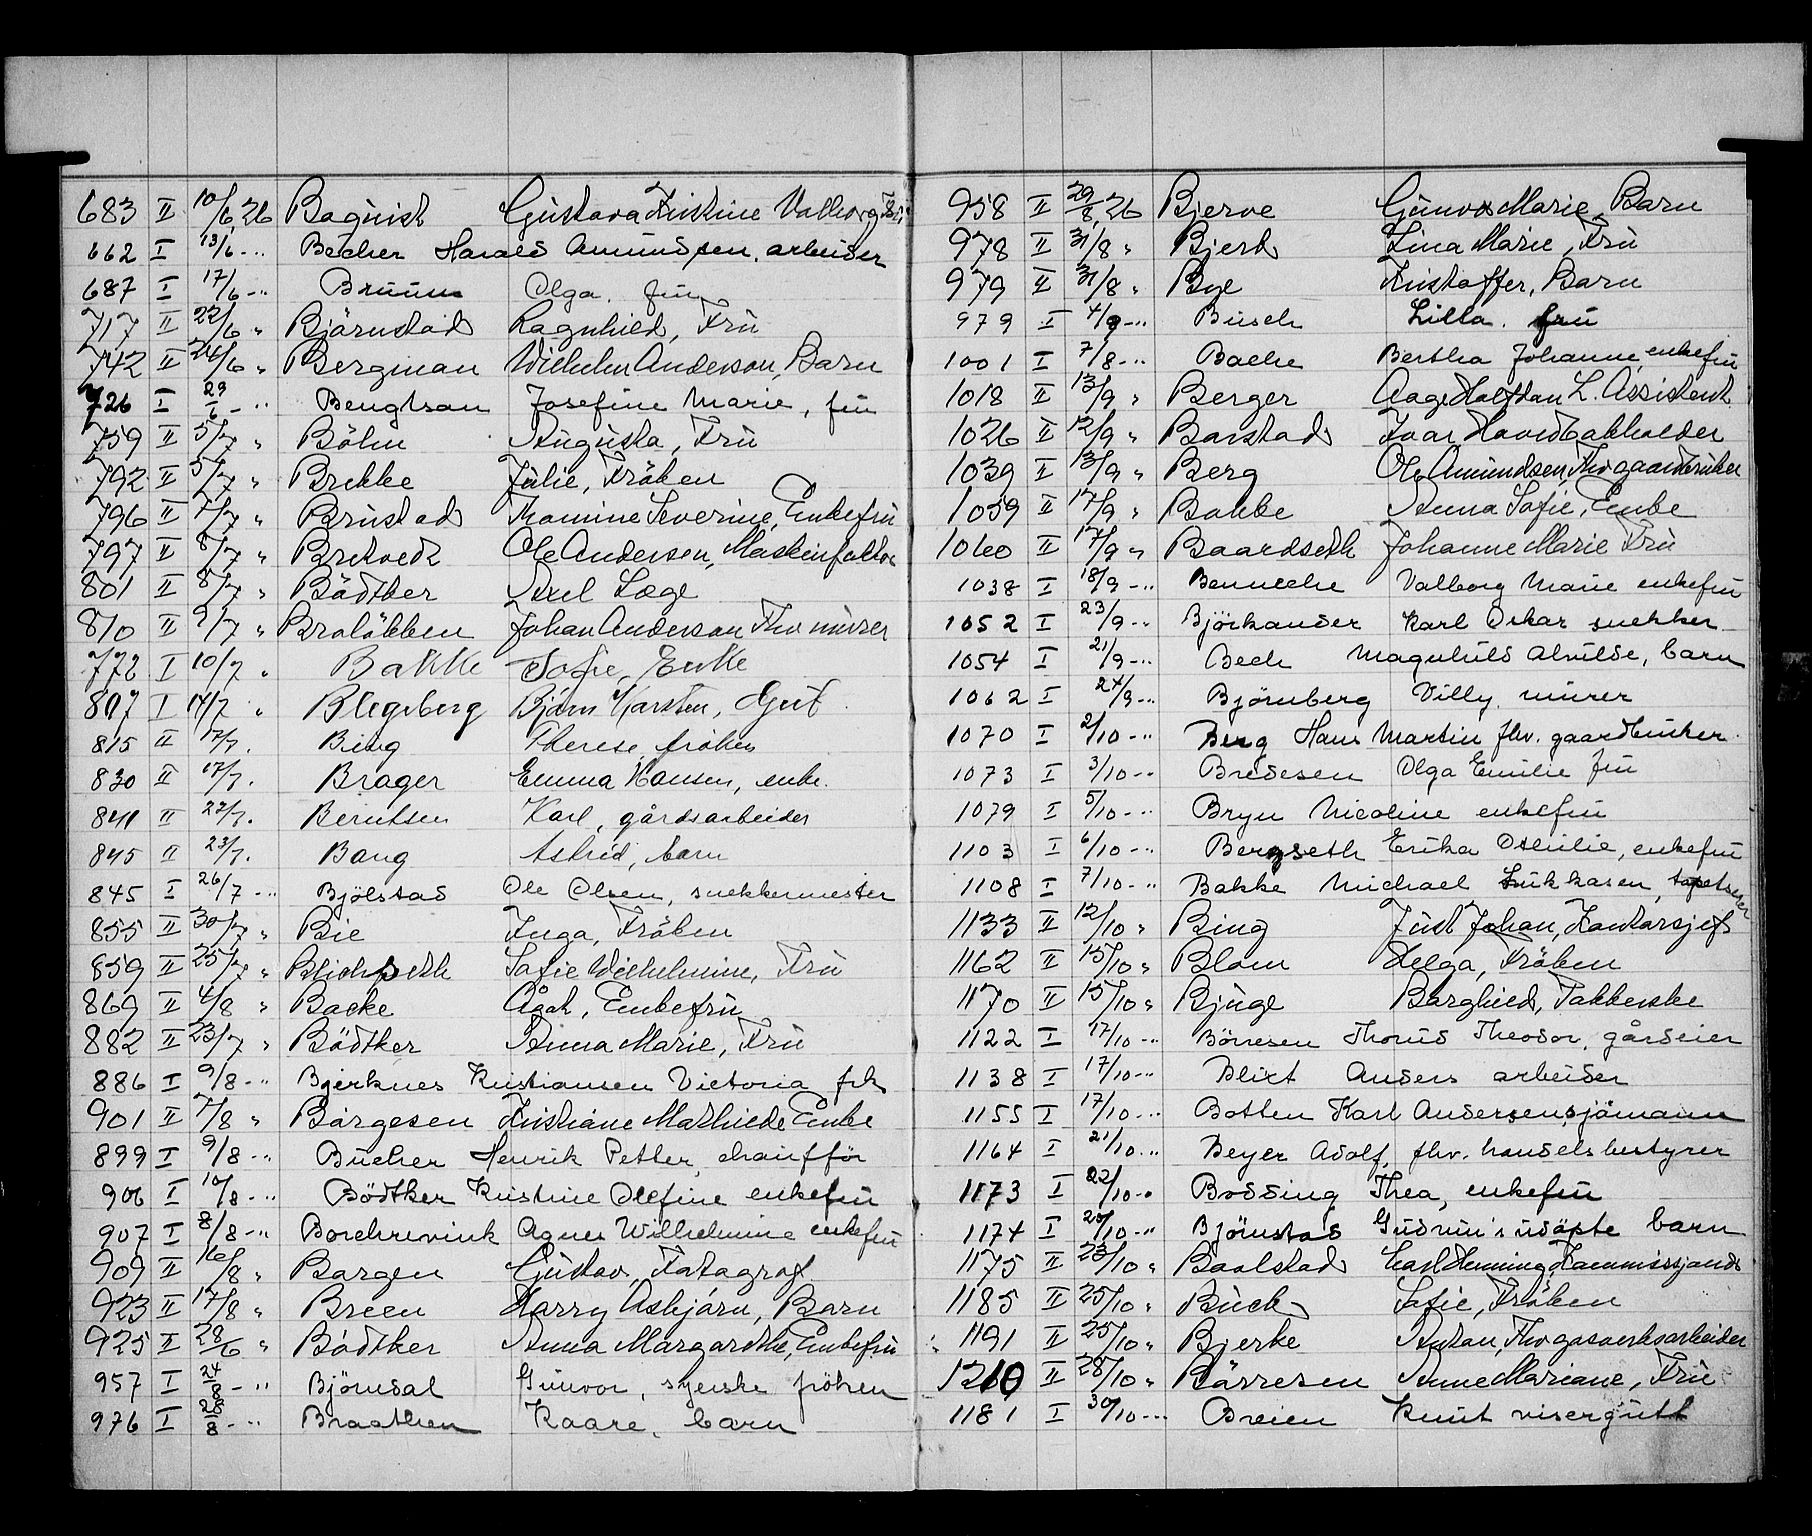 683 II 10/6 26 Baquist Gustava Kristine Valborg
662 I 13/6 -„- Becher Harald Amundsen, arbeider
687 I 17/6 -„- Bruun Olga. fru
717 II 22/6 „ Björnstad Ragnhild, Fru
742 II 24/6 „ Bergman Wilhelm Anderson, Barn
726 I 29/6 -„- Bengtson Josefine Marie, fru
759 II 5/7 „ Böhn Augusta, Fru
792 II 5/7 „ Brekke Julie, Fröken
796 II 7/7 „ Brustad Thomine Severine, Enkefru
797 II 8/7 „ Bretvedt Ole Andersen, Maskinfaktor
801 II 8/7 „ Bödtker Axel Læge
810 II 9/7 „ Braløkken Johan Anderson Fhv murer
772 I 10/7 „ Bakke Sofie, Enke
807 I 14/7 „ Blegeberg Bjørn Karsten, Gut
815 II 17/7. Bing Therese, frøken
830 II 17/7. Brager Emma Hansen, enke.
841 II 22/7. Berntsen Karl, gårdsarbeider
845 II 23/7. Bang Astrid, barn
845 I 26/7 -„- Bjölstad Ole Olsen, snekkermester
855 II 30/7 „ Bie Inga, Fröken
859 II 25/7 „ Blichfeldt Sofie Wilhelmine, Fru
869 II 4/8 „ Backe Ågot, Enkefru
882 II 23/7 „ Bödtker Anna Marie, Fru
886 I 9/8 -„- Bjerknes Kristiansen Victoria frk
901 II 7/8 „ Börgesen Kristiane Mathilde Enke
899 I 9/8 -„- Bücher Henrik Petter, chaufför
906 I 10/8 -„- Bödtker Kristine Olefine enkefru
907 I 8/8 -„- Borchrevink Agnes Wilhelmine enkefru
909 II 16/8 „ Borgen Gustav, Fotograf
923 II 17/8 „ Breen Harry Asbjörn, Barn
925 II 28/6 „ Bödtker Anna Margarethe, Enkefru
957 I 24/8 -„- Björndal Gunvor, syerske fröken
976 I 28/8 -„- Braathen Kaare, barn
958 II 29/8 26 Bjerve Gunvor Marie, Barn
978 II 31/8 „ Bjerk Lina Marie, Fru
979 II 31/8 „ Bye Kristoffer, Barn
979 I 4/9 -„- Busch Lilla. fru
1001 I 7/8 -„- Bache Bertha Johanne, enkefru
1018 II 13/9 „ Berger Aage Halfdan L. Assistent.
1026 II 12/9 „ Barstad Ivar Hovedbokholder
1039 II 13/9 „ Berg Ole Amundsen, Fhv gaardbruker
1059 II 17/9 „ Bakke Anna Sofie, Enke
1060 II 17/9 „ Baardseth Johanne Marie Fru
1038 I 18/9 -„- Benneche Valborg Marie enkefru
1052 I 23/9 -„- Björkander Karl Oskar snekker
1054 I 21/9 -„- Bech Magnhild Alvilde, barn
1062 I 24/9 -„- Björnberg Villy. murer
1070 I 2/10 -„- Berg Hans Martin fhv. gaardbruker.
1073 I 3/10 -„- Bredesen Olga Emilie fru
1079 I 5/10 -„- Bryn Nicoline enkefru
1103 I 6/10 -„- Bergseth Erika Otilie, enkefru
1108 I 7/10 -„- Bakke Michael Lukkasen, tapetserer
1133 II 12/10 „ Bing Just Johan, Kontorsjef
1162 II 15/10 „ Blom Helga, Fröken
1170 II 15/10 „ Bjuge Borghild, Pakkerske
1122 I 17/10 -„- Börresen Thorud Theodor, gårdeier
1138 I 17/10 -„- Blixt Anders arbeider
1155 I 17/10 -„- Botten Karl Andersen, sjömann
1164 I 21/10 -„- Beyer Adolf. fhv. handelsbestyrer
1173 I 22/10 -„- Bodding Thea, enkefru
1174 I 20/10 -„- Björnstad Gudrun's udöpte barn
1175 II 23/10 „ Baalstad Carl Henning,
1185 II 25/10 „ Buck Sofie, Fröken
1191 II 25/10 „ Bjerke Anton, Fhv gasverksarbeider
1210 II 28/10 „ Börresen Anne Mariane, Fru
1181 I 30/10 -„- Breien Knut visergutt